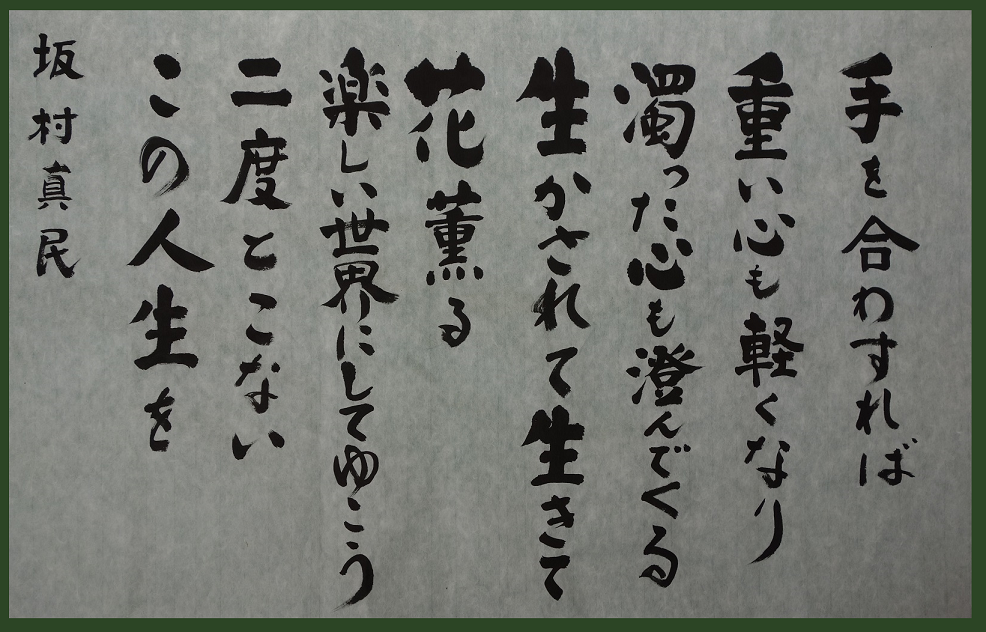 手を合わすれば
重い心も軽くなり
濁った心も澄んでくる
生かされて生きて
花薫る
楽しい世界にしてゆこう
二度とこない
この人生を
坂村真民